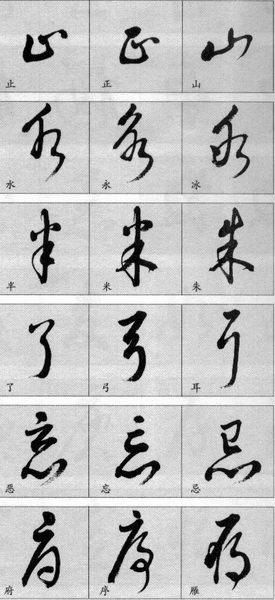 止 正 山
水 永 冰
半 米 朱
了 弓 耳
恶 忘 忌
府 序 雁